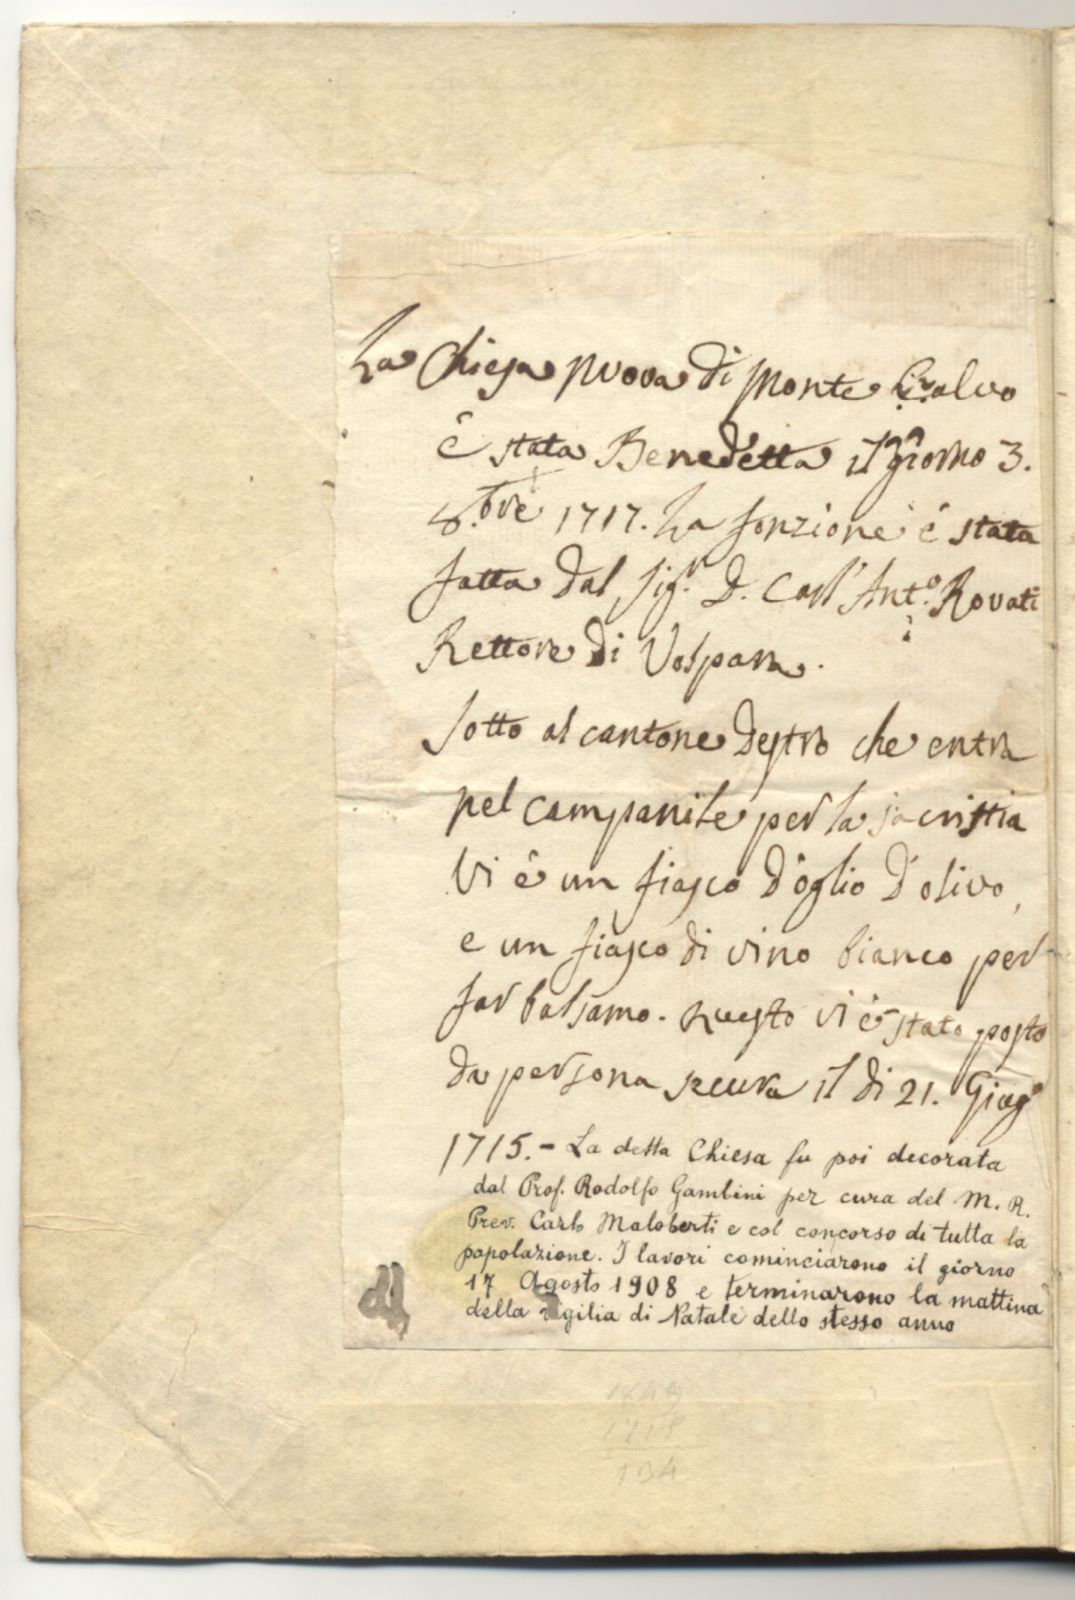 La Chiesa nuova di Monte Calvo
è stata Benedetta il giorno 3.
8.bre 1717. La fonzione è stata
fatta dal Sig.r D. Carl' Ant.o Rovati
Rettore di Volpara.
Sotto al cantone destro che entra
nel campanile per la sacristia
Vi è un fiasco d'oglio d'olivo,
e un fiasco di vino bianco per
far balsamo. Questo vi è stato posto
da persona sicura il di 21. Giug.o
1715. - La detta Chiesa fu poi decorata
dal Prof. Rodolfo Gambini per cura del M. R.
Prev. Carlo Maloberti e col concorso di tutta la
popolazione. I lavori cominciarono il giorno
17 Agosto 1908 e terminarono la mattina
della vigilia di Natale dello stesso anno
1849
1715
134